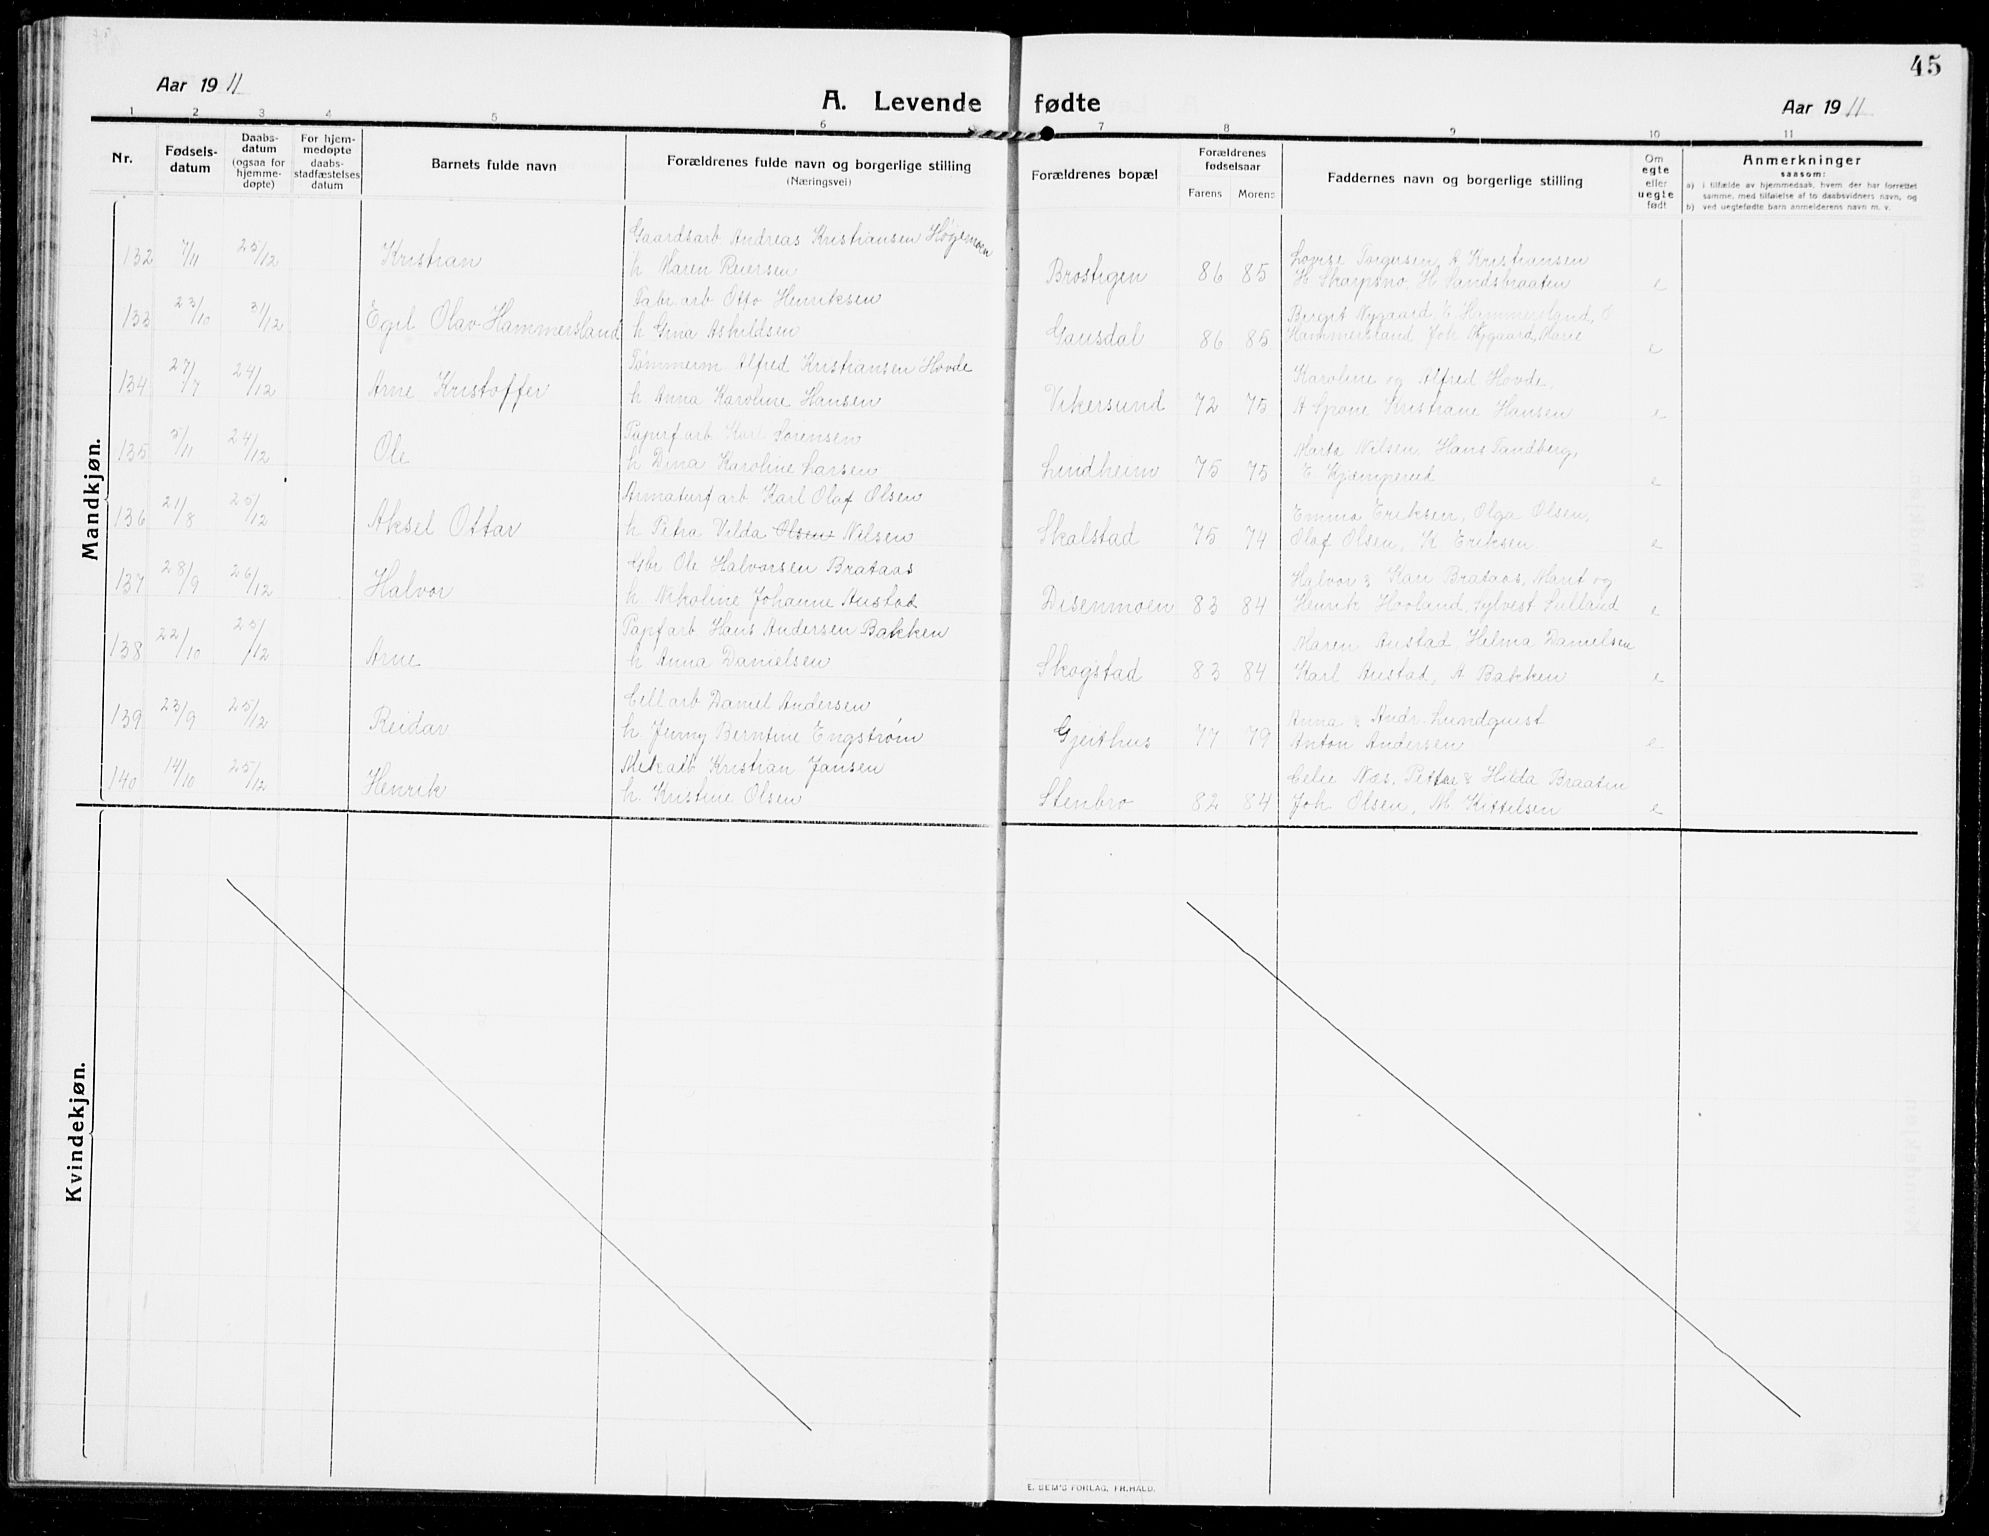 45
Aar 1911
A. Levende fødte
Aar 1911
1 2 3 4 5 6 7 8 9 10 11
Nr.
Fødsels-
datum
Daabs-
datum
(ogsaa for
hjemme-
døpte)
For hjem-
medøpte
daabs-
stadfæstelses
datum
Barnets fulde navn
Forældrenes fulde navn og borgerlige stilling
(Næringsvei)
Forældrenes bopæl
Forældrenes
fødselsaar
Farens Morens
Faddernes navn og borgerlige stilling
Om
egte
eller
uegte
født
Anmerkninger
saasom:
a) i tilfælde av hjemmedaab, hvem der har forrettet
samme, med tilføielse af to daabsvidners navn, og
b) ved uegtefødte barn anmelderens navn m. v.
Mandkjøn.
Gaardsarb. Andreas Kristiansen Højemoen
132 7/11 25/12 Kristian
h Maren Reiersen
Brostigen 86 85
Lovise Torgersen, A Kristiansen
H Skarpsno, H Sandsbraaten e
Fabr.arb Otto Henriksen
133 23/10 3/12 Egil Olav Hammersland
h Gina Askildsen
Gausdal 86 85
Birgit Nygaard, E Hammersland, O
Hammersland Joh Nygaard, Marie e
Tømmerm Alfred Kristiansen Hovde
134 27/7 24/12 Arne Kristoffer
h. Anna Karoline Hansen
Vikersund 72 75
Karoline og Alfred Hovde,
A Sprone Kristiane Hansen e
Papirfarb Karl Sørensen
135 5/11 24/12 Ole
h Dina Karoline Larsen
Lindheim 75 75
Marta Nilsen, Hans Tandberg,
E Kjæmperud e
Armaturfarb Karl Olaf Olsen
136 21/8 25/12 Aksel Ottar
h Petra Vilda Olsen Nilsen
Skalstad 75 74
Emma Eriksen, Olga Olsen,
Olaf Olsen, K Eriksen e
Gbr Ole Halvorsen Brataas
137 28/9 26/12 Halvor
h Nikoline Johanne Austad
Disenmoen 83 84
Halvor & Kari Brataas, Marit og
Henrik Hovland, Sylvest Sulland e
Papfarb Hans Andersen Bakken
138 22/10 25/12 Arne
h Anna Danielsen
Skogstad 83 84
Maren Austad, Helma Danielsen
Karl Austad, A Bakken e
Cellarb Daniel Andersen
139 23/9 25/12 Reidar
h. Jenny Berntine Engstrøm
Gjeithus 77 79
Anna & Andr. Lundquist
Anton Andersen e
Kristian Jansen
140 14/10 25/12 Henrik
h. Kristine Olsen
Stenbro 82 84
Celie Næs, Petter & Hilda Braaten
Joh Olsen, M. Kittelsen e
Kvindekjøn.
E. SEM'S FORLAG, FR.HALD.